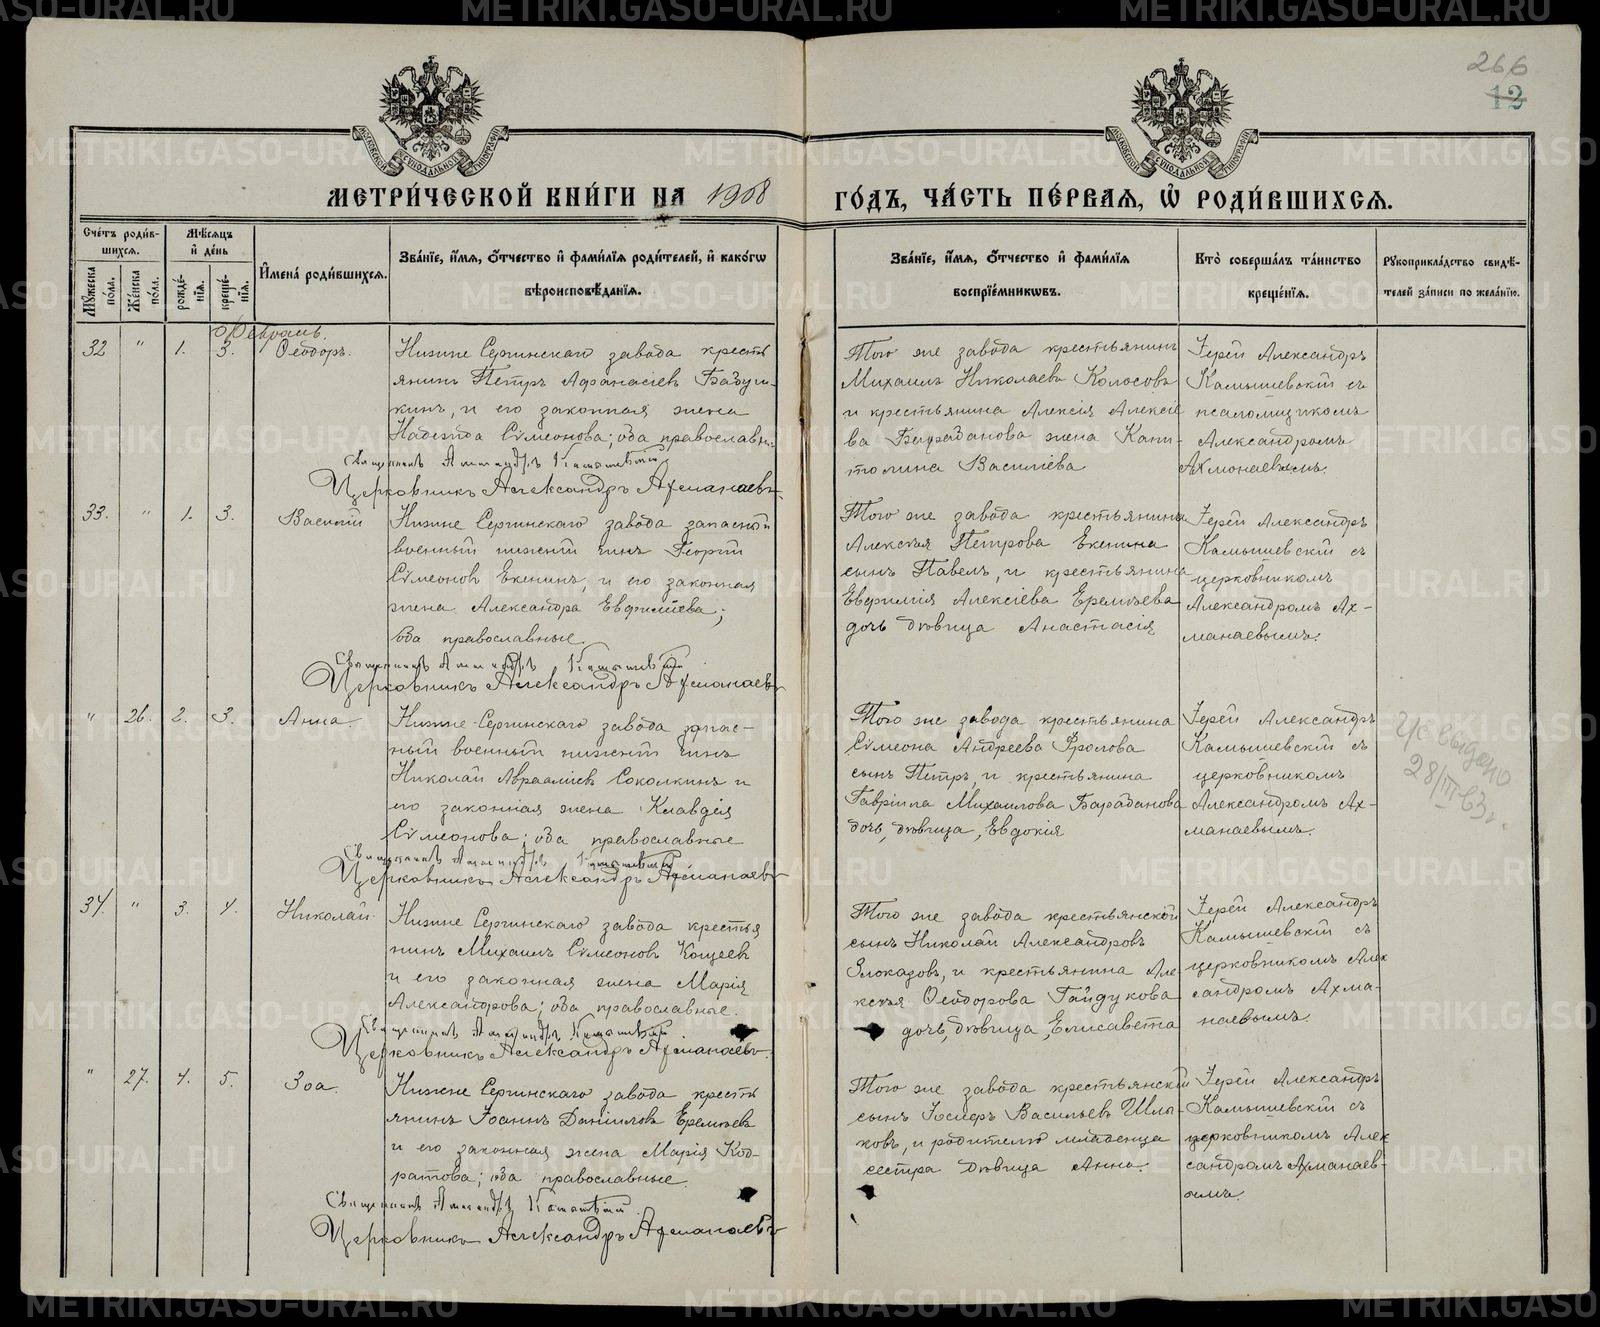 266
12
МЕТРИ́ЧЕСКОЙ КНИ́ГИ НА 1908 ГО́ДЪ, ЧА́СТЬ ПЕ́РВАЯ, Ѡ҆ РОДИ́ВШИХСЯ.
Сче́тъ роди́в-
шихся.
Мꙋ́жеска по́ла.
Же́нска по́ла.
Мѣ́сяцъ
и҆ де́нь
рожде́-
нїя.
креще́-
нїя.
И҆мена̀ роди́вшихся.
Зва́нїе, и҆́мя, ѻ҆́тчество и҆ фами́лїя роди́телей, и҆ како́гѡ
вѣроисповѣ́данїя.
Зва́нїе, и҆́мя, ѻ҆́тчество и҆ фами́лїя
воспрїе́мникѡвъ.
Кто̀ соверша́лъ та́инство
креще́нїя.
Рꙋкоприкла́дство свидѣ́-
телей за́писи по жела́нїю.
Февраль.
32 " 1. 3. Ѳеодоръ.
Нижне Сергинскаго завода кресть
янинъ Петръ Аѳанасіевъ Бабуш-
кинъ, и его законная жена
Надежда Сѵмеонова; оба православные
Священникъ Александръ Камышевскій
Церковникъ Александръ Ахманаевъ
Того же завода крестьянинъ
Михаилъ Николаевъ Колосовъ
и крестьянина Алексія Алексіе
ва Барабанова жена Капи-
толина Василіева
Іерей Александръ
Камышевскій съ
псаломщикомъ
Александромъ
Ахмонаевымъ.
33. " 1. 3. Василій
Нижне Сергинскаго завода запасный
военный нижній чинъ Георгій
Сѵмеоновъ Екенинъ, и его законная
жена Александра Евѳиміева;
оба православные.
Священникъ Александръ Камышевскій
Церковникъ Александръ Ахманаевъ
Того же завода крестьянина
Алексѣя Петрова Екенина
сынъ Павелъ, и крестьянина
Евѳимія Алексіева Еремѣева
дочь дѣвица Анастасія
Іерей Александръ
Камышевскій съ
церковникомъ
Александромъ Ах-
манаевымъ.
" 26. 2. 3. Анна.
Нижне-Сергинскаго завода запас-
ный военный нижній чинъ
Николай Авраміевъ Соколкинъ и
его законная жена Клавдія
Сѵмеонова; оба православные
Священникъ Александръ Камышевскій
Церковникъ Александръ Ахманаевъ
Того же завода крестьянина
Сѵмеона Андреева Фролова
сынъ Петръ, и крестьянина
Гавріила Михаилова Барабанова
дочь, дѣвица, Евдокія
Іерей Александръ
Камышевскій съ
церковникомъ
Александромъ Ах-
манаевымъ.
выдано
28/III-63г.
34. " 3. 4. Николай
Нижне Сергинскаго завода крестья
нинъ Михаилъ Сѵмеоновъ Кощеевъ
и его законная жена Марія
Александрова; оба православные.
Священникъ Александръ Камышевскій
Церковникъ Александръ Ахманаевъ.
Того же завода крестьянскій
сынъ Николай Александровъ
Злоказовъ, и крестьянина Але-
ксѣя Ѳеодорова Гайдукова
дочь, дѣвица, Елисавета
Іерей Александръ
Камышевскій съ
церковникомъ Алек
сандромъ Ахма-
наевымъ.
" 27. 4. 5. Зоа.
Нижне Сергинскаго завода кресть
янинъ Іоаннъ Даніиловъ Еремѣевъ
и его законная жена Марія Код-
ратова; оба православные.
Священникъ Александръ Камышевскій.
Церковникъ Александръ Ахманаевъ
Того же завода крестьянскій
сынъ Іосифъ Васильевъ Шлы-
ковъ, и родителю младенца
сестра дѣвица Анна.
Іерей Александръ
Камышевскій съ
церковникомъ Алек
сандромъ Ахманаев-
ымъ.
METRIKI.GASO-URAL.RU